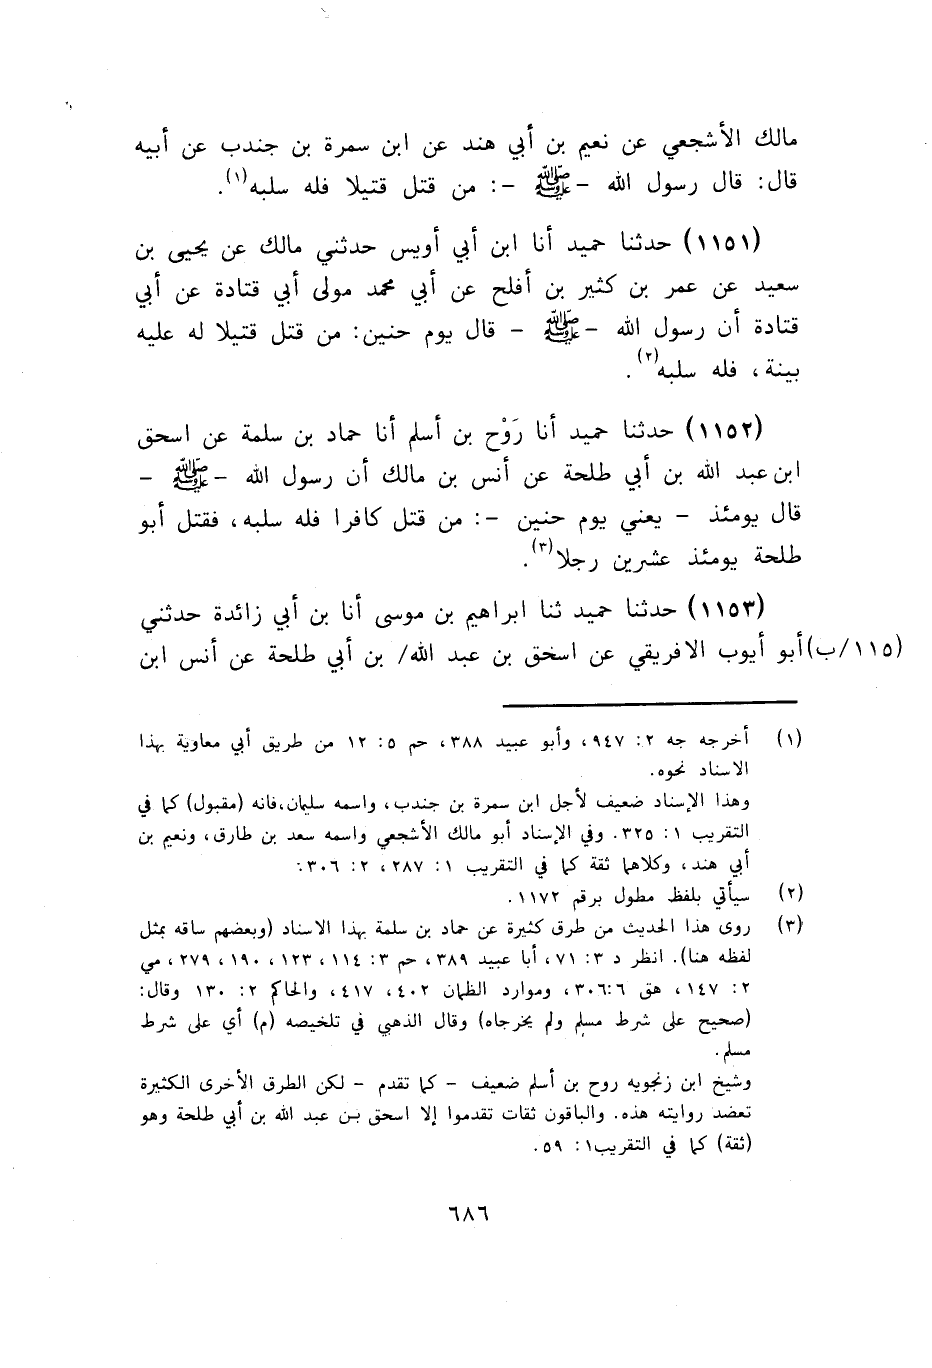 مالك الأشجعي عن نعيم بن أبي هند عن ابن سمرة بن جندب عن أبيه
قال: قال رسول الله –ﷺ –: من قتل قتيلا فله سلبه(١).
(١١٥١) حدثنا حميد أنا ابن أبي أويس حدثني مالك عن يحيى بن
سعيد عن عمر بن كثير بن أفلح عن أبي محمد مولى أبي قتادة عن أبي
قتادة أن رسول الله –ﷺ – قال يوم حنين: من قتل قتيلا له عليه
بينة، فله سلبه(٢).
(١١٥٢) حدثنا حميد أنا رَوْح بن أسلم أنا حماد بن سلمة عن اسحق
ابن عبد الله بن أبي طلحة عن أنس بن مالك أن رسول الله –ﷺ –
قال يومئذ – يعني يوم حنين –: من قتل كافرا فله سلبه، فقتل أبو
طلحة يومئذ عشرين رجلا(٣).
(١١٥٣) حدثنا حميد ثنا ابراهيم بن موسى أنا بن أبي زائدة حدثني
(١١٥/ب) أبو أيوب الافريقي عن اسحق بن عبد الله/ بن أبي طلحة عن أنس ابن
(١) أخرجه جه ٢: ٩٤٧، وأبو عبيد ٣٨٨، حم ٥: ١٢ من طريق أبي معاوية بهذا
الاسناد نحوه.
وهذا الإسناد ضعيف لأجل ابن سمرة بن جندب، واسمه سليمان،فانه (مقبول) كما في
التقريب ١: ٣٢٥. وفي الإسناد أبو مالك الأشجعي واسمه سعد بن طارق، ونعيم بن
أبي هند، وكلاهما ثقة كما في التقريب ١: ٢٨٧، ٢: ٣٠٦.
(٢) سيأتي بلفظ مطول برقم ١١٧٢.
(٣) روى هذا الحديث من طرق كثيرة عن حماد بن سلمة بهذا الاسناد (وبعضهم ساقه بمثل
لفظه هنا). انظر د ٣: ٧١، أبا عبيد ٣٨٩، حم ٣: ١١٤، ١٢٣، ١٩٠، ٢٧٩، مي
٢: ١٤٧، هق ٣٠٦:٦، وموارد الظمان ٤٠٢، ٤١٧، والحاكم ٢: ١٣٠ وقال:
(صحيح على شرط مسلم ولم يخرجاه) وقال الذهبي في تلخيصه (م) أي على شرط
مسلم.
وشيخ ابن زنجويه روح بن أسلم ضعيف – كما تقدم – لكن الطرق الأخرى الكثيرة
تعضد روايته هذه. والباقون ثقات تقدموا إلا اسحق بن عبد الله بن أبي طلحة وهو
(ثقة) كما في التقريب١: ٥٩.
٦٨٦